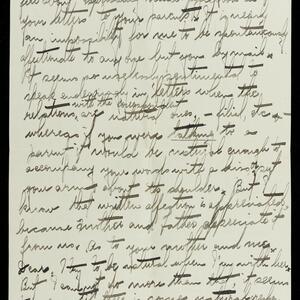 your letters to your parents is it really
an impossible for me to be spontaneously
affectionate to any one but even by mail.
It seems perversely sentimental to
speak endearingly in letters when the
with the correspondent
relations are natural ones, – filial, etc –
whereas if you were talking to a
parent it would be natural enough to
accompany your words with a kiss or
your arms about the shoulders. But I
know the written affection is appreciated,
because mother and father appreciate it
from us. As to your mother and me
dear: I try to be natural when I'm with her
But I cannot do more than that it seems